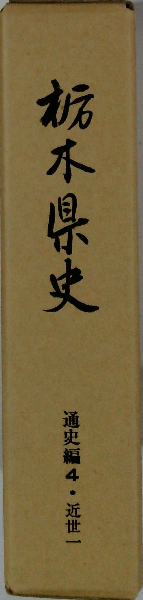 栃木県史
通史編4・近世一